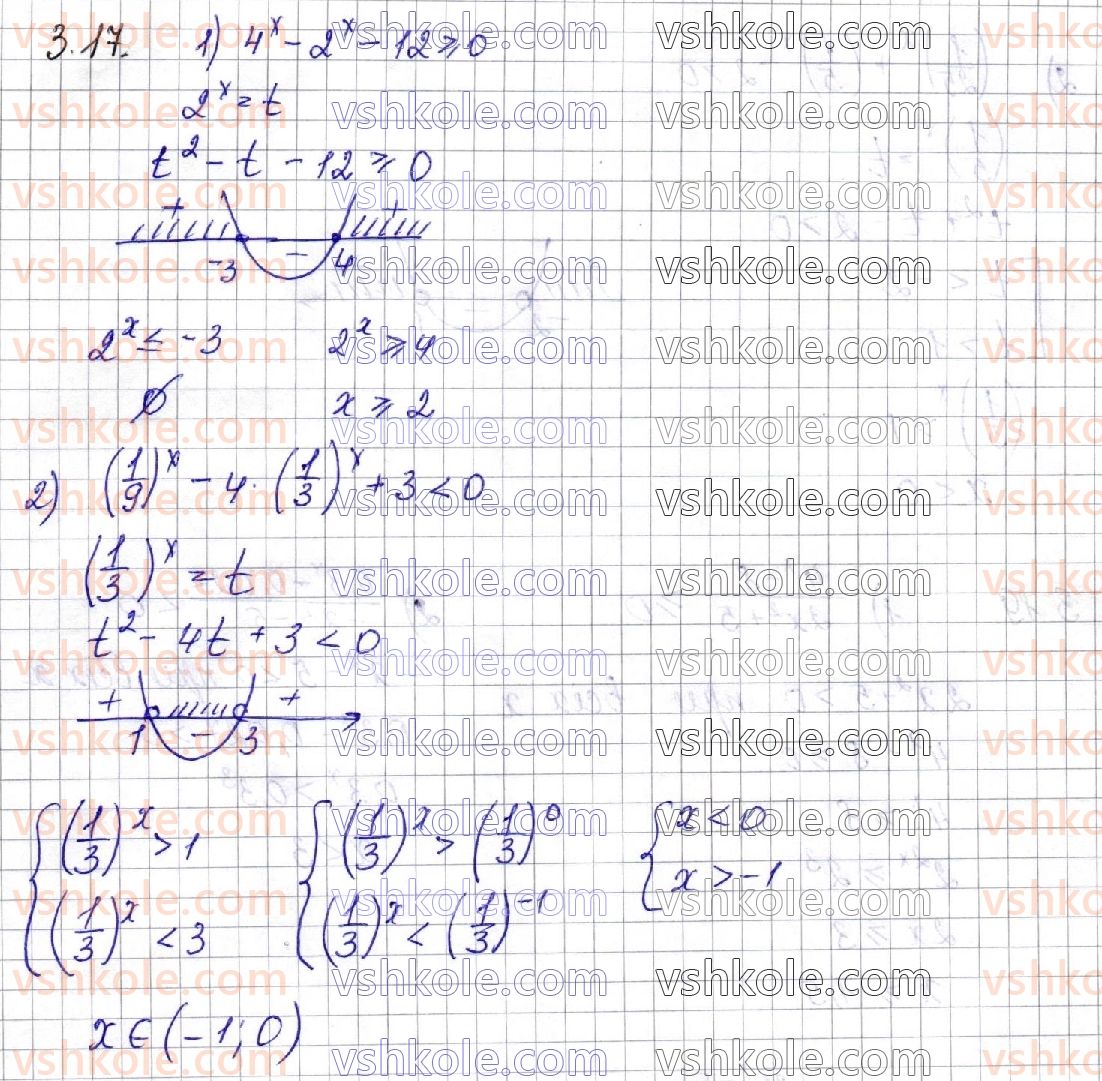 3.17. 1) 4^x - 2^x - 12 ≥ 0
2^x = t
t^2 - t - 12 ≥ 0
+ +
-3 - 4
2^x ≤ -3 2^x ≥ 4
∅ x ≥ 2
2) (1/9)^x - 4 · (1/3)^x + 3 < 0
(1/3)^x = t
t^2 - 4t + 3 < 0
+ +
1 - 3
{ (1/3)^x > 1 { (1/3)^x > (1/3)^0 { x < 0
(1/3)^x < 3 (1/3)^x < (1/3)^-1 x > -1
x ∈ (-1; 0)
vshkole.com